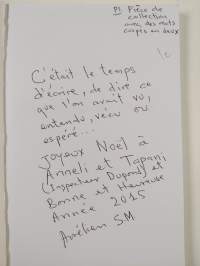 P1 Pièce de
collection
avec des mots
coupés en deux
C'était le temps
d'écrire, de dire ce
que l'on avait vu,
entendu, vécu ou
espéré...
Joyeux Noel à
Anneli et Tapani,
(Inspecteur Dupond) et
Bonne et Heureuse
Année 2015
Aurélien SM